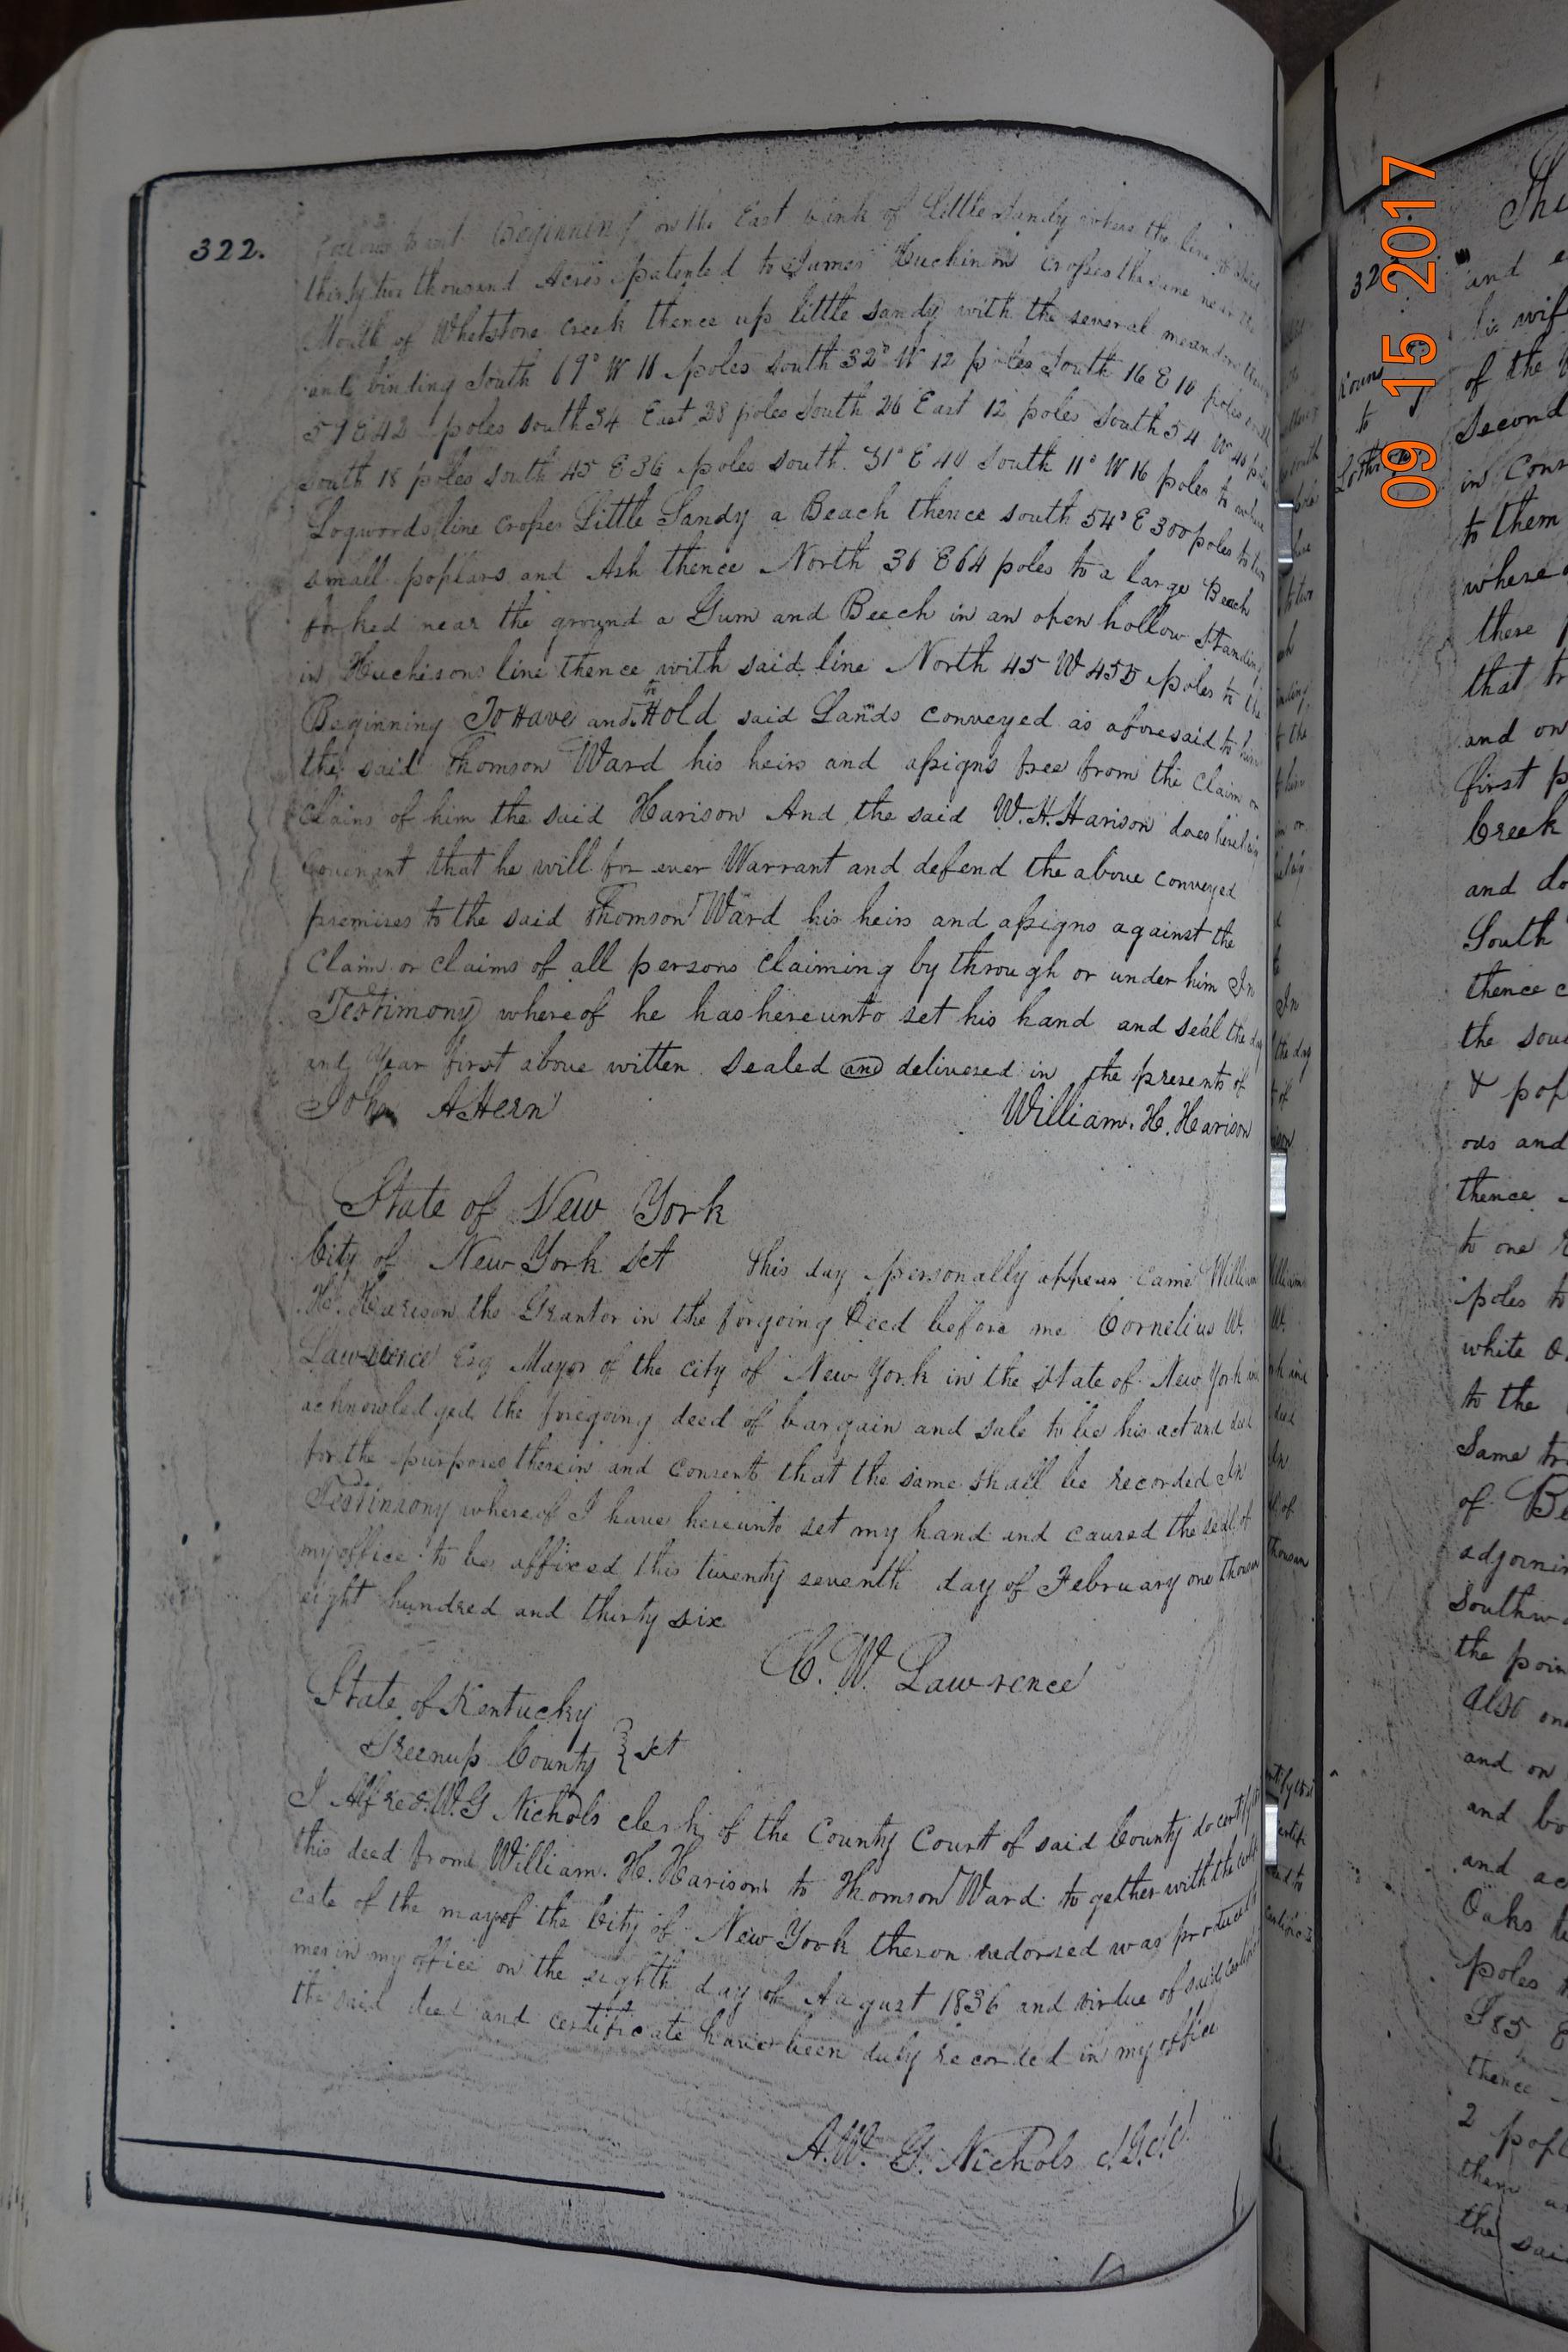 322.
follows to wit Beginning on the East bank of Little Sandy where the line of said
thirty two thousand Acres patented to James Huchinson crosses the same near the
Mouth of Whetstone creek thence up little sandy with the several meanders
and binding South 69° W 11 poles south 32° W 12 poles South 16 E 10 poles south
57 E 42 poles south 34 East 28 poles South 26 East 12 poles south 54 W 40
South 18 poles south 45 E 36 poles south. 31° E 40 South 11° W 16 poles to where
Logwords line crosses Little Sandy a Beach thence south 54° E 300 poles to two
small poplars and Ash thence North 36 E 64 poles to a large Beach
forked near the ground a Gum and Beech in an open hollow standing
in Huchisons line thence with said line North 45 W 455 poles to the
Beginning To Have and to Hold said Lands conveyed as aforesaid to him
the said Thomson Ward his heirs and assigns free from the claim or
claims of him the said Harison And the said W. H. Harison does herein
Covenant that he will for ever Warrant and defend the above conveyed
premises to the said Thomson Ward his heirs and assigns against the
Claim or claims of all persons claiming by through or under him In
Testimony whereof he has hereunto set his hand and seal the day
and year first above witten. Sealed and delivered in the presents of
John A Hern William. H. Harison
State of New York
City of New York sct This day personally appear came William
H. Harison the Grantor in the forgoing Deed before me Cornelius W.
Lawrence Esq Mayor of the city of New York in the State of New York and
acknowledged the foregoing deed of bargain and sale to be his act and deed
for the purposes therein and consents that the same shall be recorded In
Testimony whereof I have hereunto set my hand and caused the seal of
my office to be affixed this twenty seventh day of February one thousan
eight hundred and thirty six
C. W. Lawrence
State of Kentucky
Greenup County } sct
I Alfred. W. G Nichols clerk of the County Court of said County do certify that
this deed from William. H. Harison to Thomson Ward to gether with the certifi
cate of the mayor of the City of New York theron endorsed was produced to
me in my office on the eighth day of August 1836 and virtue of said
the said deed and certificate have been duly recorded in my office
A. W. G. Nichols c.g.c.c.
09 15 2017
The
32
and e
his wif
to
of the
Second
in Con
to them
where
these p
that tr
and on
first p
Creek
and do
South
thence c
the sou
& pop
ods and
thence
to one
poles to
white O
to the
Same tr
of Be
adjoinin
Southw
the poin
Also on
and on
and bo
and ac
Oaks
poles
S 85 E
thence
2 popl
them
the sai